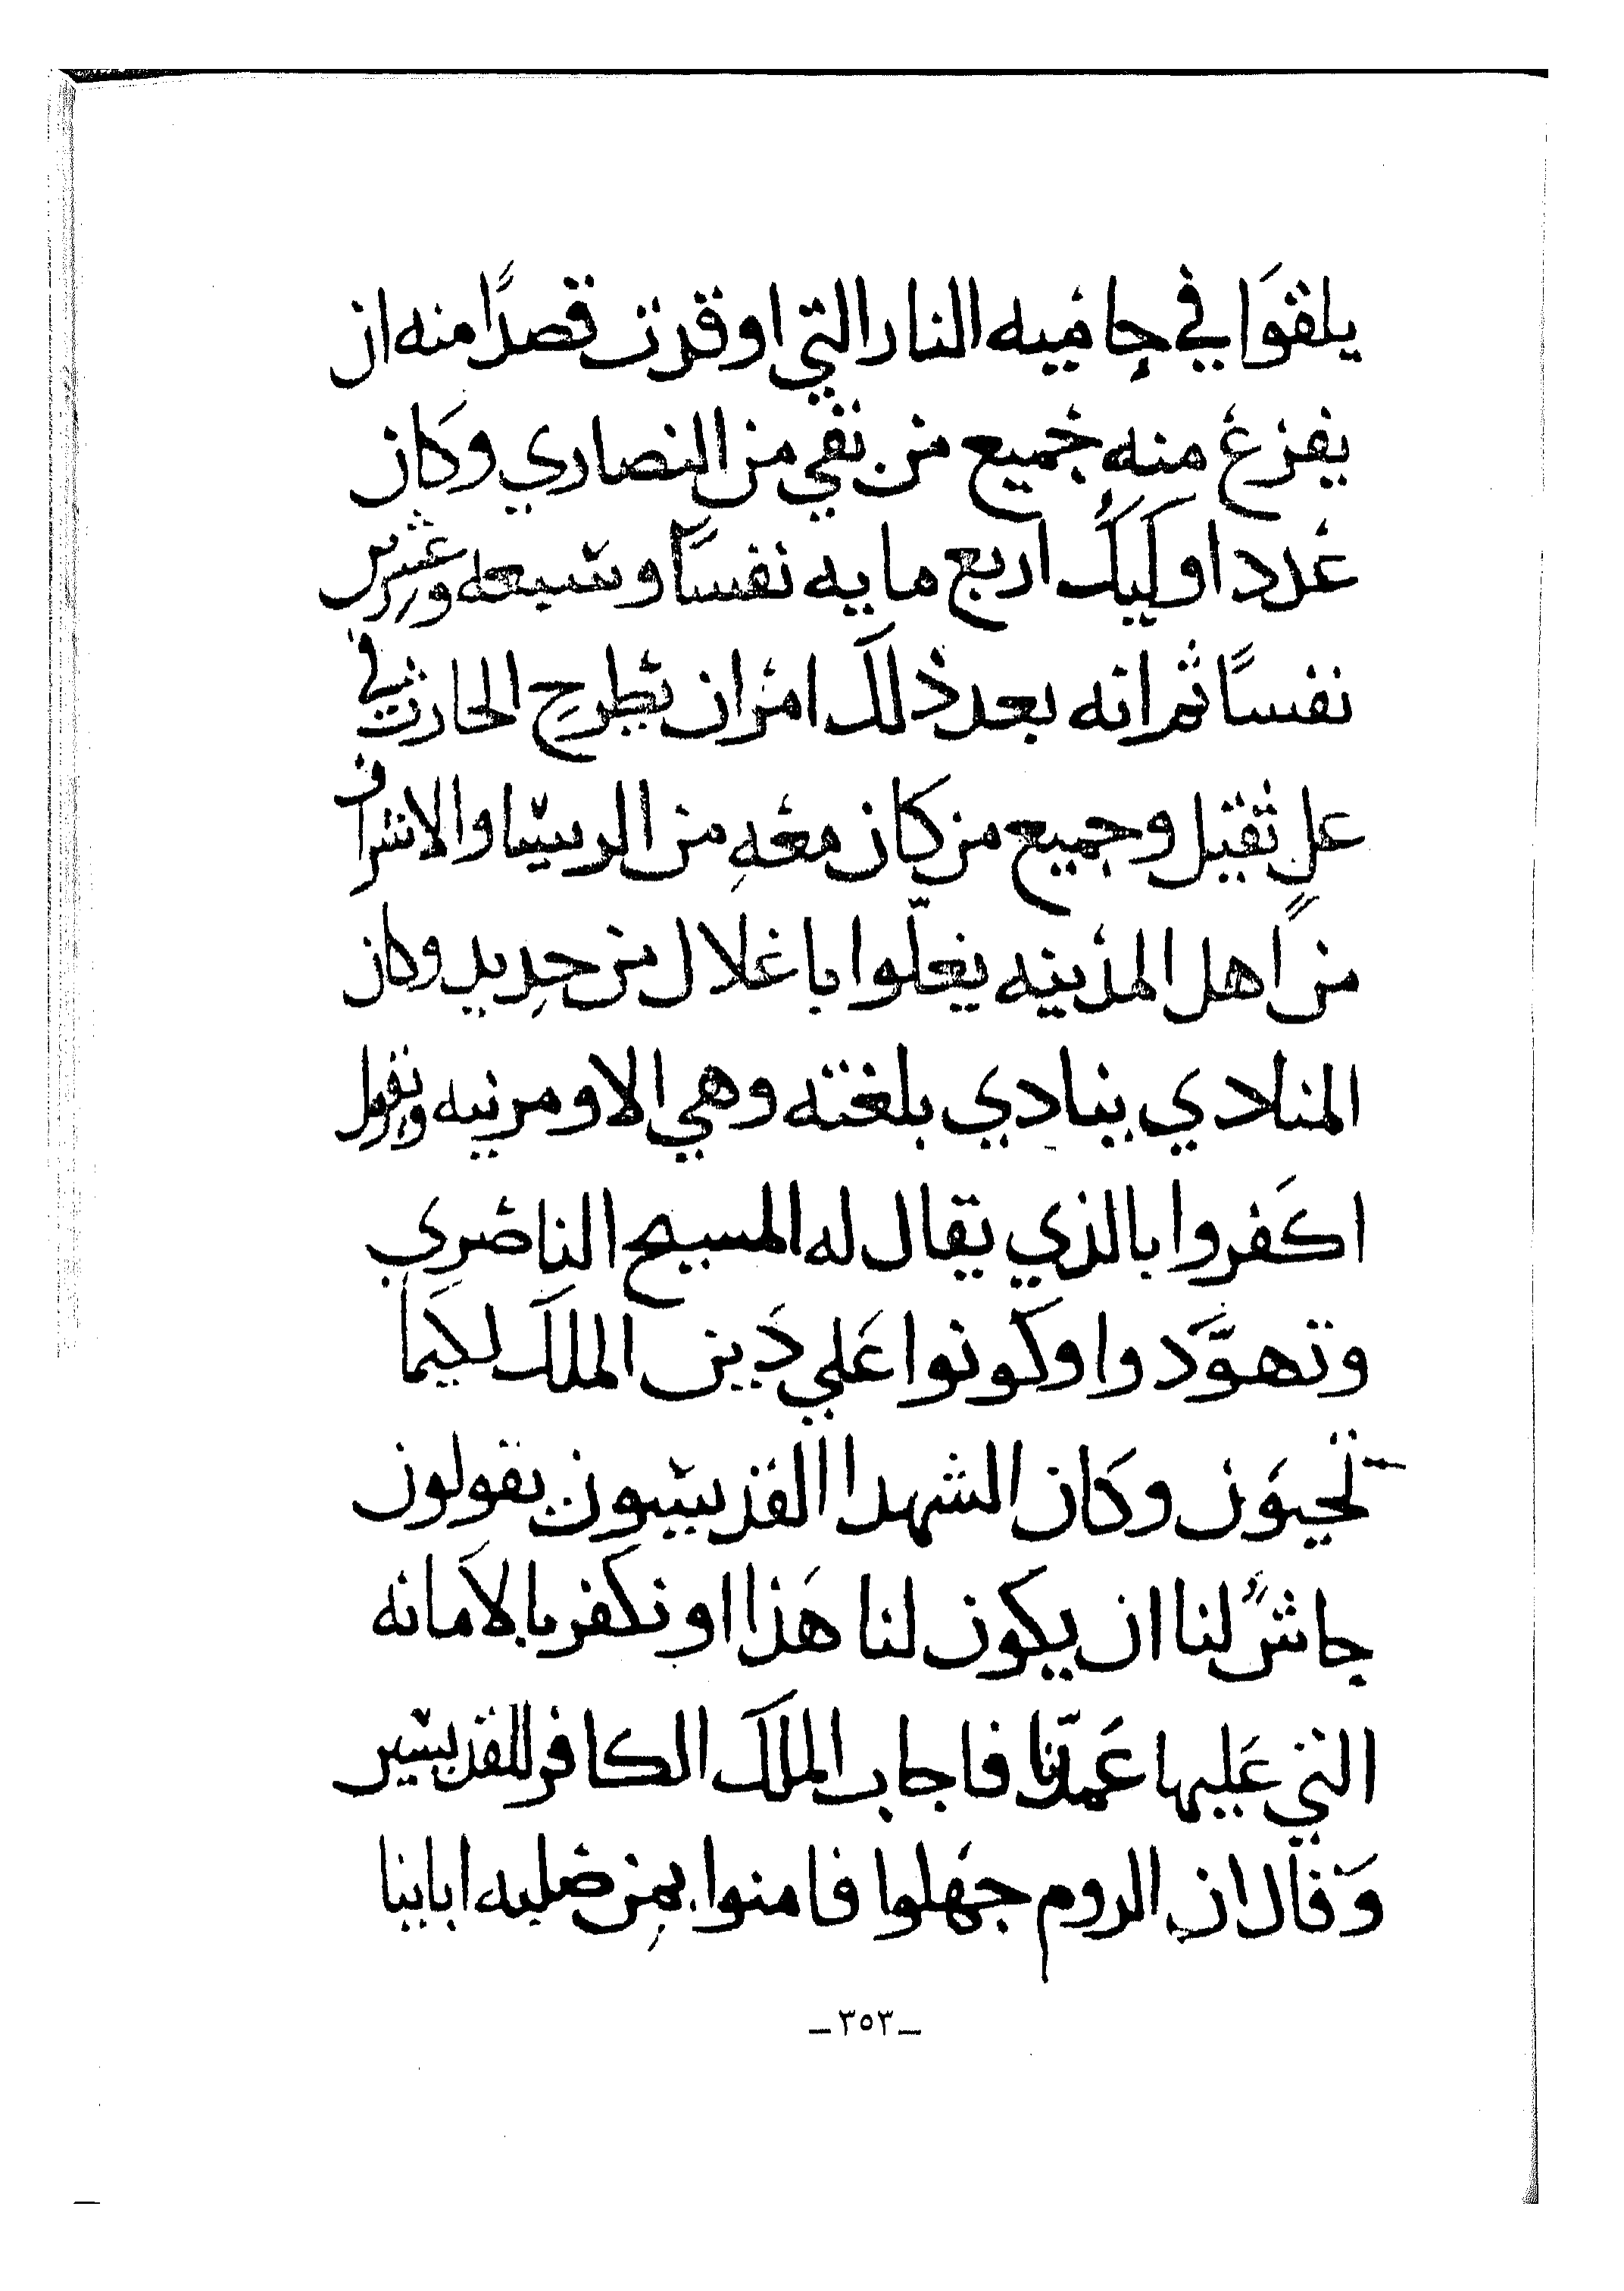 يلقوَا في حاميه النار التي اوقدت قصدًا منه ان
يفزع منه جميع من بقي من النصاري وكان
عدد اوليك اربع مايه نفسًا وسبعه وعشرين
نفسًا ثم انه بعد ذلك امر ان يطرح الحارث في
غل ثقيل وجميع من كان معه من الريسا والاشراف
من اهل المدينه يغلّوا باغلال من حديد وكان
المنادي ينادي بلغته وهي الاومرنيه ويقول
اكفروا بالذي يقال له المسيح الناصري
وتهوَّدوا وكونوا علي دين الملك لكيما
تحيوَن وكان الشهدا القديسون يقولون
حاشَ لنا ان يكون لنا هَذا او نكفر بالامانه
التي عَليها عَمدّنا فاجاب الملك الكافر للقديسين
وَقال ان الروم جهلوا فامنوا بمن صلبه اباينا
ـ٣٥٣ـ